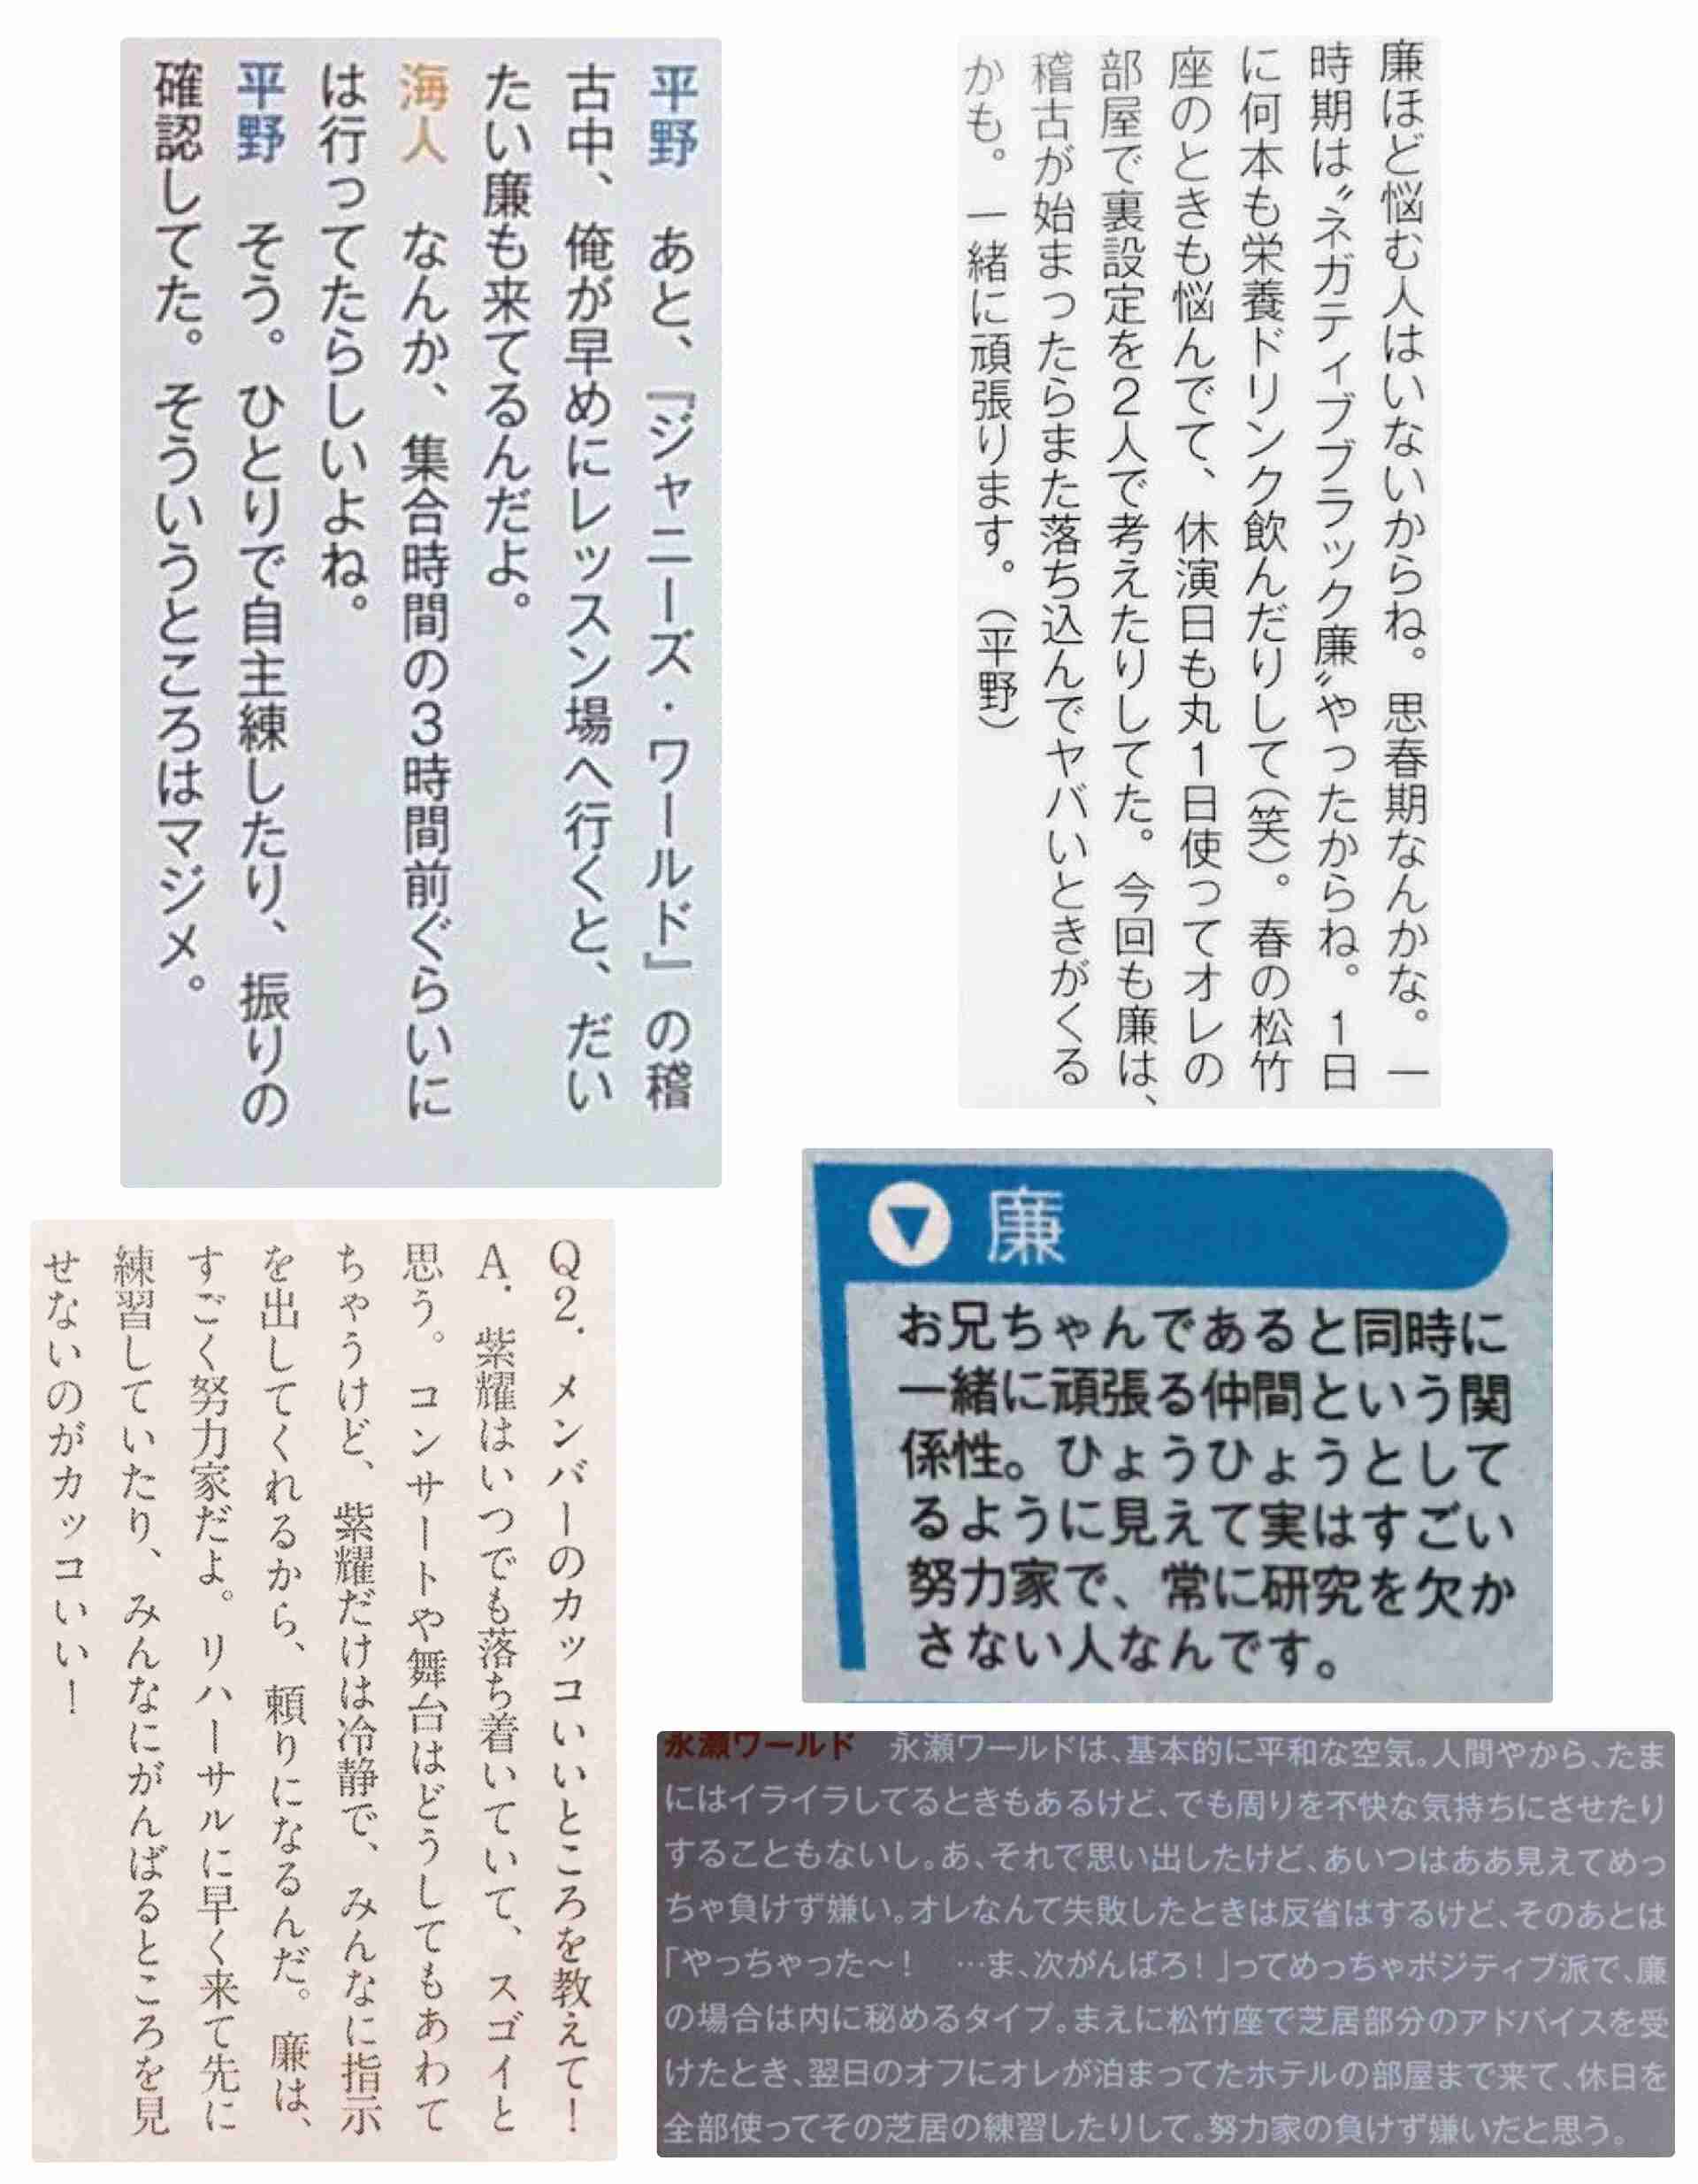 平野　あと、『ジャニーズ・ワールド』の稽
古中、俺が早めにレッスン場へ行くと、だい
たい廉も来てるんだよ。
海人　なんか、集合時間の3時間前ぐらいに
は行ってたらしいよね。
平野　そう。ひとりで自主練したり、振りの
確認してた。そういうところはマジメ。
廉ほど悩む人はいないからね。思春期なんかな。一
時期は〝ネガティブブラック廉〟やったからね。1日
に何本も栄養ドリンク飲んだりして(笑)。春の松竹
座のときも悩んでて、休演日も丸1日使ってオレの
部屋で裏設定を2人で考えたりしてた。今回も廉は、
稽古が始まったらまた落ち込んでヤバいときがくる
かも。一緒に頑張ります。(平野)
廉
お兄ちゃんであると同時に
一緒に頑張る仲間という関
係性。ひょうひょうとして
るように見えて実はすごい
努力家で、常に研究を欠か
さない人なんです。
Q2. メンバーのカッコいいところを教えて！
A. 紫耀はいつでも落ち着いていて、スゴイと
思う。コンサートや舞台はどうしてもあわて
ちゃうけど、紫耀だけは冷静で、みんなに指示
を出してくれるから、頼りになるんだ。廉は、
すごく努力家だよ。リハーサルに早く来て先に
練習していたり、みんなにがんばるところを見
せないのがカッコいい！
永瀬ワールド　永瀬ワールドは、基本的に平和な空気。人間やから、たま
にはイライラしてるときもあるけど、でも周りを不快な気持ちにさせたり
することもないし。あ、それで思い出したけど、あいつはああ見えてめっ
ちゃ負けず嫌い。オレなんて失敗したときは反省はするけど、そのあとは
「やっちゃった〜！　…ま、次がんばろ！」ってめっちゃポジティブ派で、廉
の場合は内に秘めるタイプ。まえに松竹座で芝居部分のアドバイスを受
けたとき、翌日のオフにオレが泊まってたホテルの部屋まで来て、休日を
全部使ってその芝居の練習したりして。努力家の負けず嫌いだと思う。